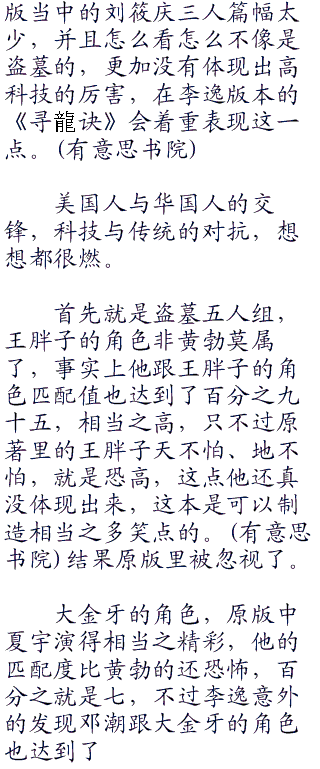 版当中的刘筱庆三人篇幅太
少，并且怎么看怎么不像是
盗墓的，更加没有体现出高
科技的厉害，在李逸版本的
《寻龍诀》会着重表现这一
点。(有意思书院)
美国人与华国人的交
锋，科技与传统的对抗，想
想都很燃。
首先就是盗墓五人组，
王胖子的角色非黄勃莫属
了，事实上他跟王胖子的角
色匹配值也达到了百分之九
十五，相当之高，只不过原
著里的王胖子天不怕、地不
怕，就是恐高，这点他还真
没体现出来，这本是可以制
造相当之多笑点的。(有意思
书院)结果原版里被忽视了。
大金牙的角色，原版中
夏宇演得相当之精彩，他的
匹配度比黄勃的还恐怖，百
分之就是七，不过李逸意外
的发现邓潮跟大金牙的角色
也达到了